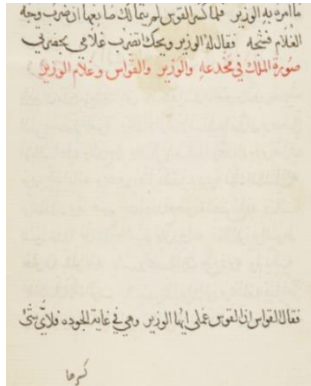 ما امره به الوزير فلما كسر القوس لم يتمالك صانعها ان ضرب وجه
الغلام فشجه فقال له الوزير ويحك اتضرب غلامي بحضرتي
صورة الملك في مخدعه والوزير والقواس وغلام الوزير
فقال القواس ان القوس عملى ايها الوزير وهي في غاية الجوده فلاي شئ
كسرها